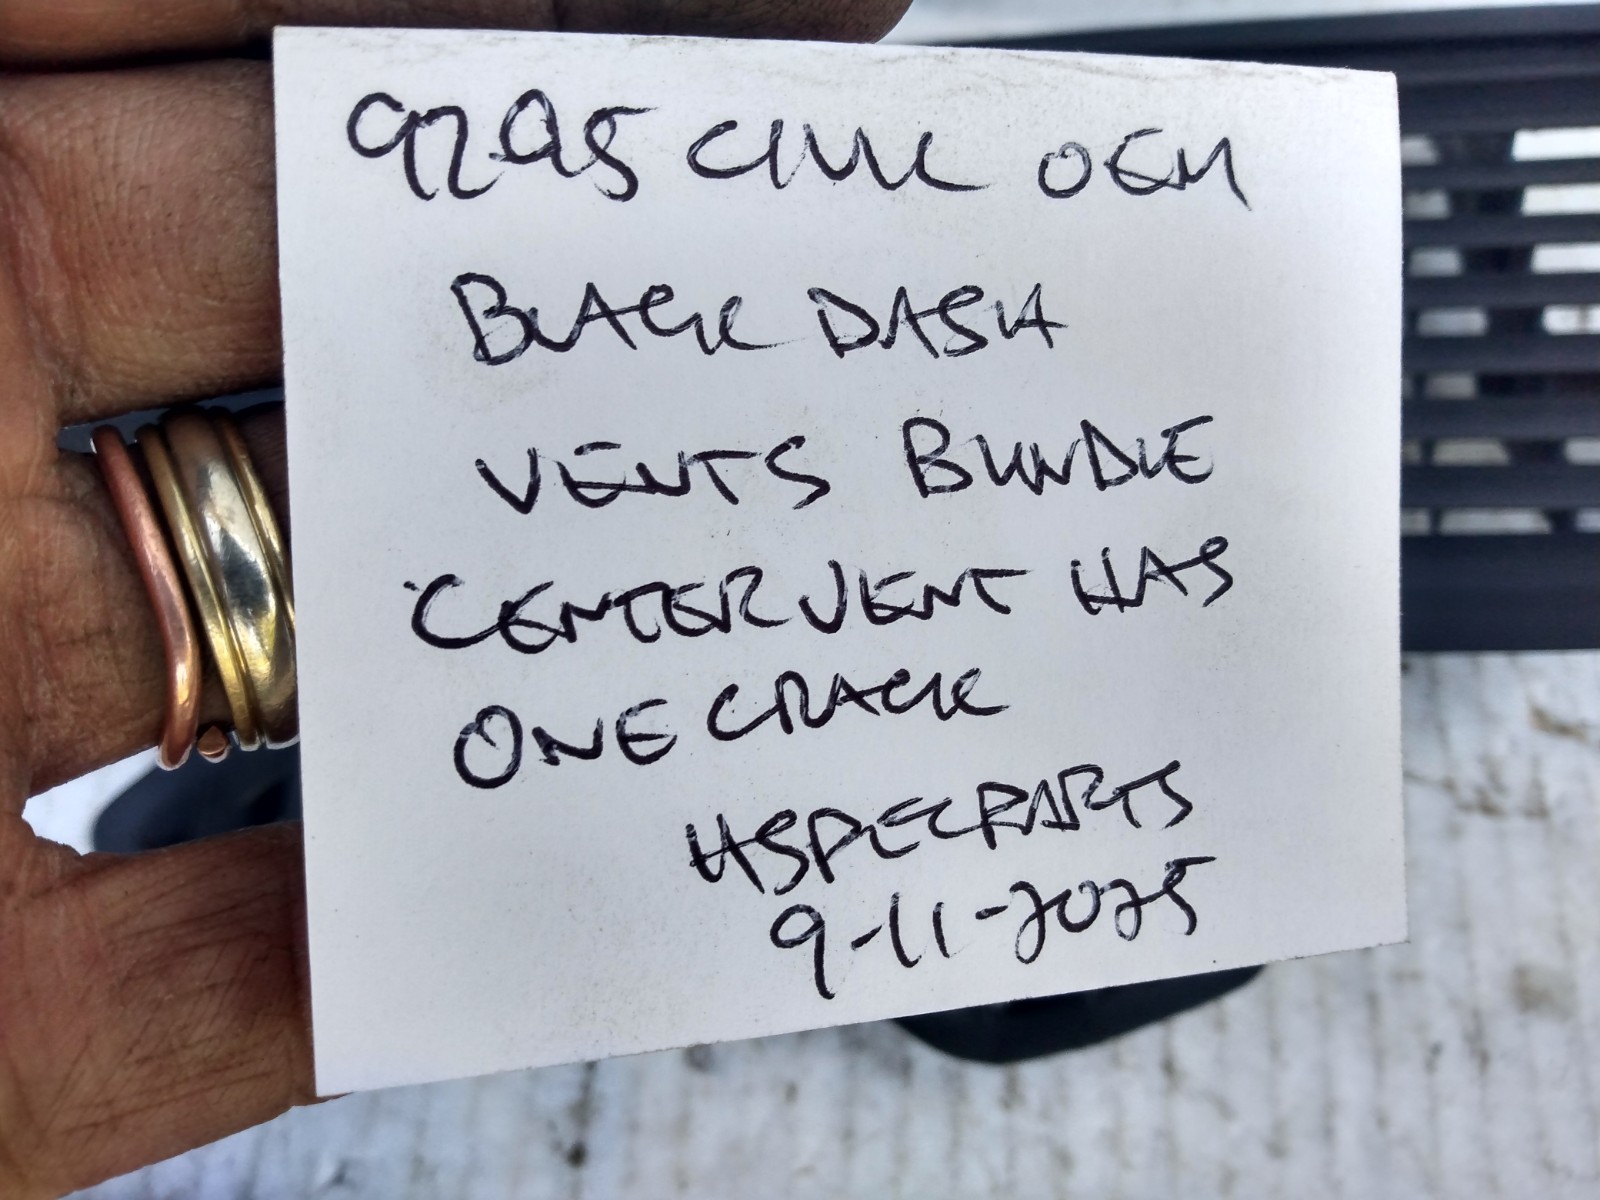 92-95 CIVIC OEM
BLACK DASH
VENTS BUNDLE
CENTER VENT HAS
ONE CRACK
HSPECPARTS
9-11-2025